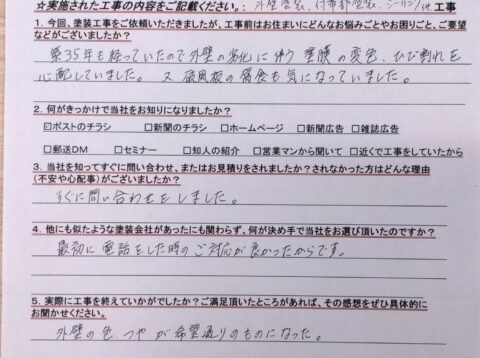 ☆実施された工事の内容をご記載ください。: 外壁塗装、付帯部塗装、シーリング他 工事
1. 今回、塗装工事をご依頼いただきましたが、工事前はお住まいにどんなお悩みごとやお困りごと、ご要望
などがございましたか?
築35年も経っていたので外壁の劣化に伴う塗膜の変色、ひび割れを
心配していました。又破風板の腐食も気になっていました。
2. 何がきっかけで当社をお知りになりましたか?
☑ポストのチラシ □新聞のチラシ □ホームページ □新聞広告 □雑誌広告
□郵送DM □セミナー □知人の紹介 □営業マンから聞いて □近くで工事をしていたから
3. 当社を知ってすぐに問い合わせ、またはお見積りをされましたか?されなかった方はどんな理由
(不安や心配事)がございましたか?
すぐに問い合わせをしました。
4. 他にも似たような塗装会社があったにも関わらず、何が決め手で当社をお選び頂いたのですか?
最初に電話をした時のご対応が良かったからです。
5. 実際に工事を終えていかがでしたか?ご満足頂いたところがあれば、その感想をぜひ具体的に
お聞かせください。
外壁の色、つやが希望通りのものになった。